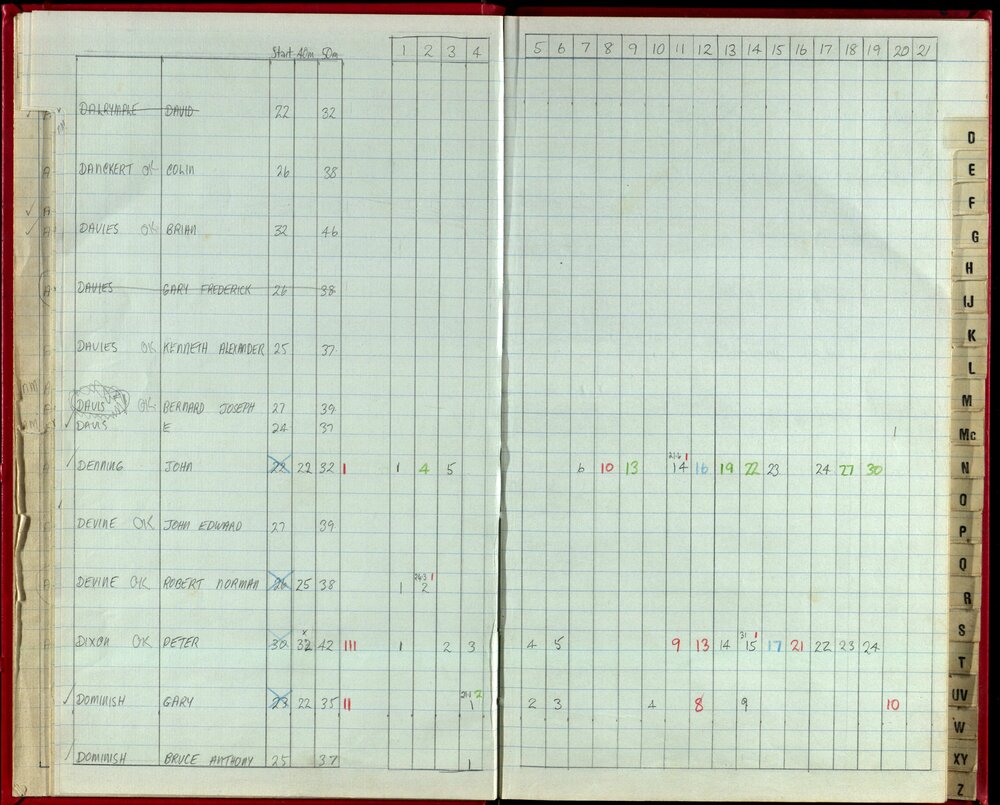 Start 40m 50m 1 2 3 4 5 6 7 8 9 10 11 12 13 14 15 16 17 18 19 20 21
DALRYMPLE DAVID 22 32
DANCKERT OK COLIN 26 38
DAVIES OK BRIAN 32 46
DAVIES GARY FREDERICK 26 38
DAVIES OK KENNETH ALEXANDER 25 37
DAVIS OK BERNARD JOSEPH 27 39
DAVIS E 24 37 1
DENNING JOHN 22 22 32 1 1 4 5 6 10 13 14 16 19 22 23 24 27 30
DEVINE OK JOHN EDWARD 27 39
DEVINE OK ROBERT NORMAN 26 25 38 1 2
DIXON OK PETER 30 32 42 111 1 2 3 4 5 9 13 14 15 17 21 22 23 24
DOMINISH GARY 23 22 35 11 1 2 3 4 8 9 10
DOMINISH BRUCE ANTHONY 25 37 1
D
E
F
G
H
IJ
K
L
M
Mc
N
O
P
Q
R
S
T
UV
W
XY
Z